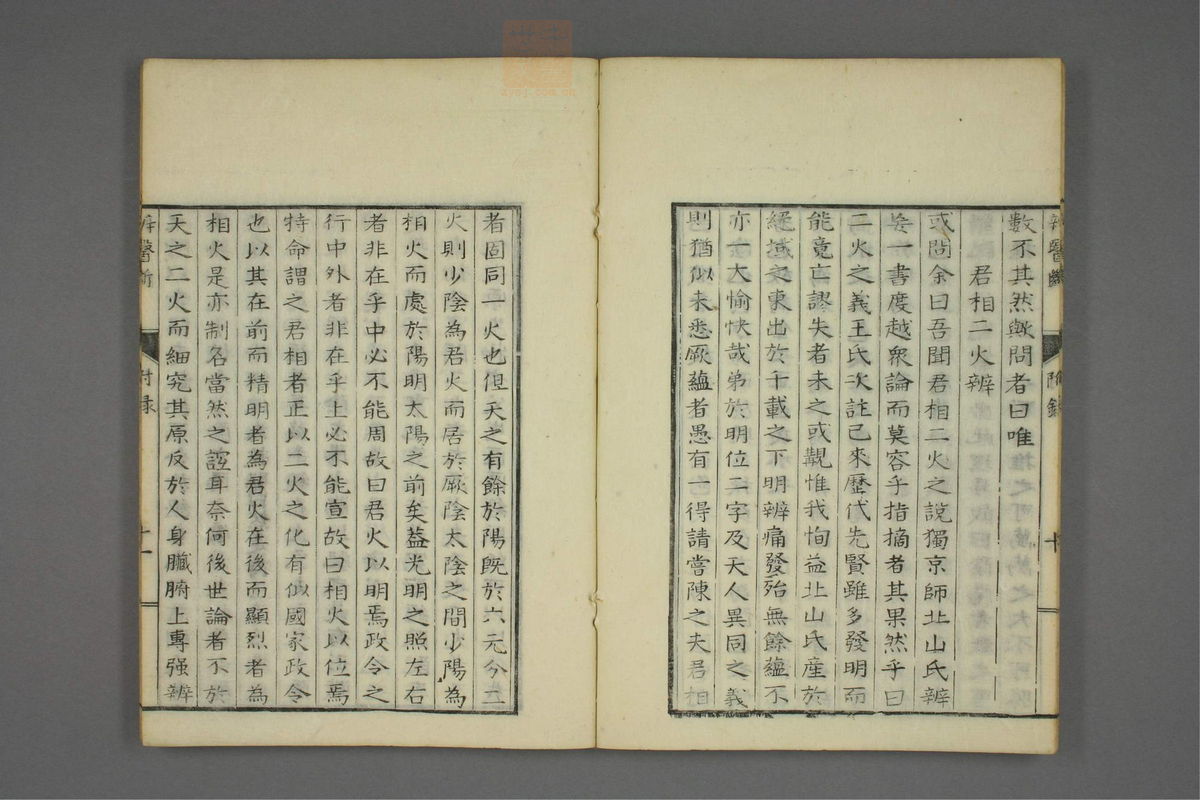 數不其然歟問者曰唯
君相二火辨
或問余曰吾聞君相二火之說獨京師北山氏辨
妄一書度越衆論而莫容乎指摘者其果然乎曰
二火之義王氏次註已來歷代先賢雖多發明而
能竟亡謬失者未之或覩惟我恂益北山氏産於
絕域之東出於千載之下明辨痛發殆無餘蘊不
亦一大愉快哉弟於明位二字及天人異同之義
則猶似未悉厥蘊者愚有一得請嘗陳之夫君相
者固同一火也但天之有餘於陽旣於六元分二
火則少陰為君火而居於厥陰太陰之間少陽為
相火而處於陽明太陽之前矣蓋光明之照左右
者非在乎中必不能周故曰君火以明焉政令之
行中外者非在乎上必不能宣故曰相火以位焉
特命謂之君相者正以二火之化有似國家政令
也以其在前而精明者為君火在後而顯烈者為
相火是亦制名當然之誼耳奈何後世論者不於
天之二火而細究其原反於人身臟腑上專强辨
辨醫斷 附錄 十
辨醫斷 附錄 十一